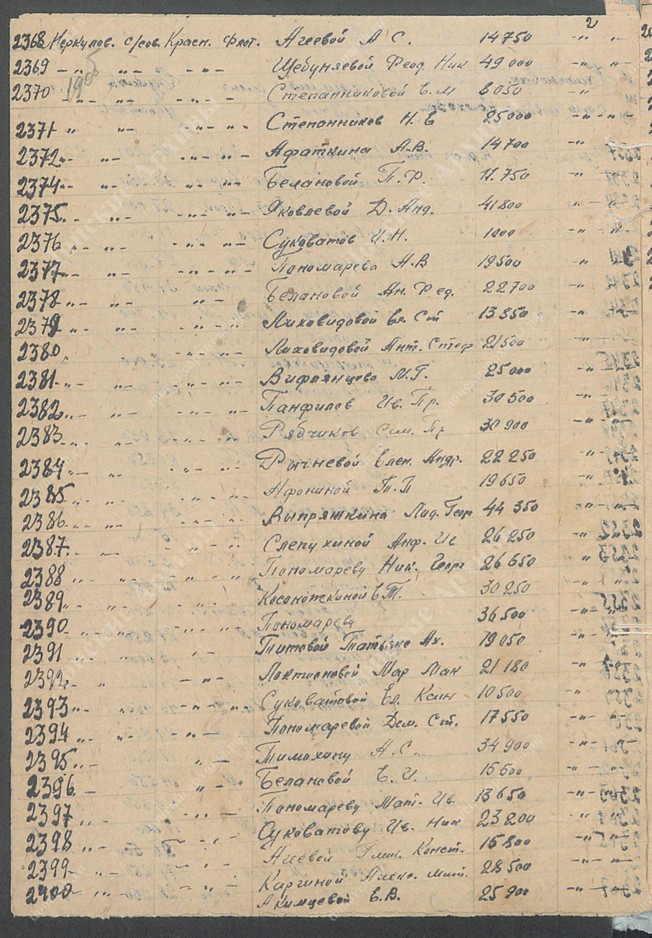 2
2368 Меркулов. с/сов. Красн. Флот. Агеевой А С. 14750 -"- "-
2369 -"- "- -"- Щебуняевой Феод. Ник 49000 -"-
2370 1905 -"- -"- Степанниковой Е. М 8050 -"-
2371 " -"- -"-"- Степанников Н. Е 25000 -"-"-
2372 "- -"- "-"- Афаткина А. В. 14700 -"-
2374 "- -"- -"- Белановой П. Ф. 11.750 -"-
2375 "- -"- -"-"- Яковлевой Д. Анд. 41800 -"-
2376 "- -"- -"-"- Суковатов И. Н. 1000 -"-
2377 "- -"- -"-"- Пономарева А. В 19500 -"-
2378 "- -"- -"-"- Белановой Ан. Фед. 22700 -"-
2379 "- -"- -"-"- Лиховидовой Ел. Ст 13850 -"-
2380 " -"-"- Лиховидовой Ант. Стеф 21500 -"-
2381 "- -"- -"-"- Вифлянцева М. Г. 25000 -"-
2382 "- -"- -"-"- Панфилов Ив. Пр. 30500 -"-
2383 " -"- -"- Рябчиков Сим. Пр 30900 -"-
2384 "- -"- -"- Рычневой Елен. Андр. 22250 -"-
2385 "- -"- -"- Афониной П. П 19650 -"-
2386 "- -"- -"-"- Выпряжкина Лид. Геор 44350 -"-
2387 "- -"- -"-"- Слепухиной Анф. Ив 26250 -"-
2388 "- -"- -"-"- Пономареву Ник. Георг 26650 -"-
2389 "- -"- -"-"- Косоножкиной Е. Т. 30250 -"-
2390 "- -"- -"-"- Пономареву 36500 -"-
2391 " " -"- Титовой Татьяне Ях. 19050 -"-
2392 "- -"- -"- Локтионовой Мар Мак 21180 -"-
2393 "- -"- -"-"- Суковатовой Ел. Ксин 10500 -"-
2394 "- -"- -"-"- Пономаревой Дем. Ст. 17550 -"-
2395 "- -"- -"- Тимохину А. С. 34900 -"-
2396 - " -"- Белановой Е. И. 15500 -"-
2397 "- -"- -"- Пономареву Мат. Ив. 13650 -"-
2398 "- " -"- Суковатову Ив. Ник 23200 -"-
2399 "- -"- -"- Агеевой Констант. 15800 -"-
2400 "- -"- -"- Каргиной Алекс. Мит. 28500 -"-
Акимцевой Е. В. 25900 -"-